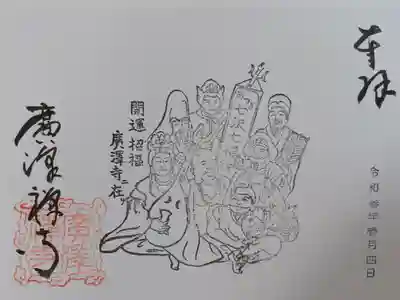 奉拝
令和参年壱月四日
開運 招福
廣澤寺ニ在リ
廣澤禅寺